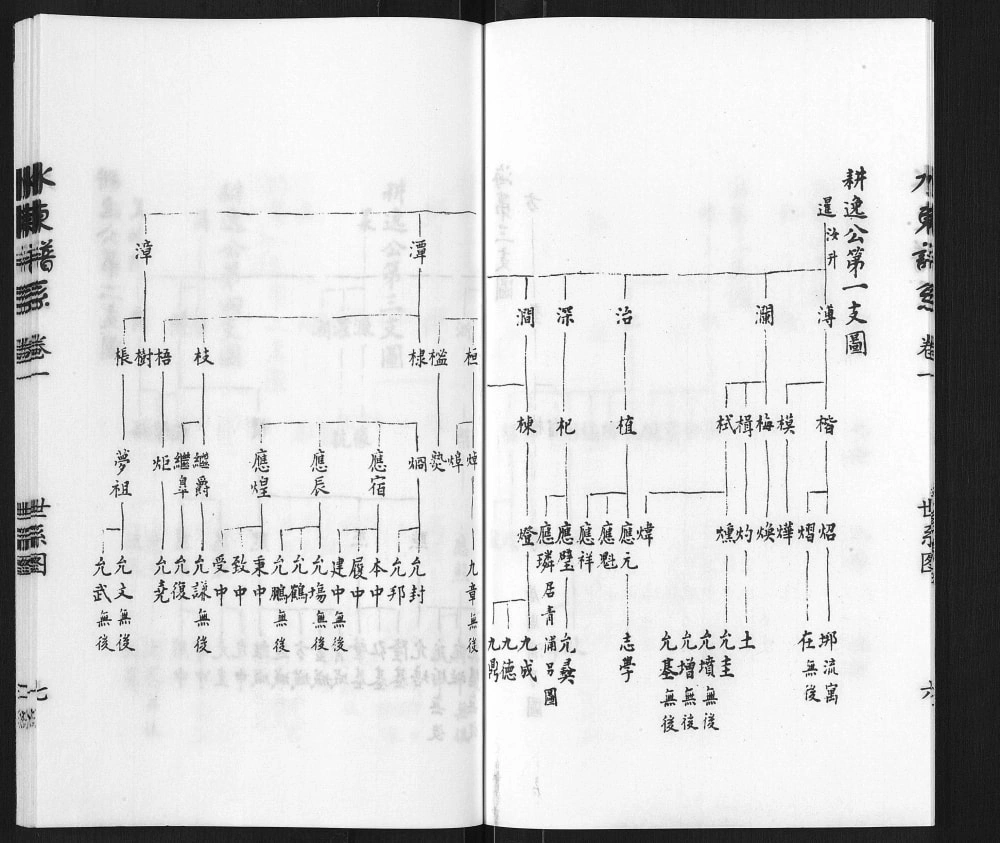 耕逸公第一支圖
暹
汝升
溥
瀾
治
深
澗
楷
模
梅
楫
栻
植
杞
棟
炤
熠
燁
煥
灼
燻
煒
應元
應魁
應祥
應璧
應璘居青浦呂圖
燈
邺流寓
在無後
土
允圭
允墳無後
允增無後
允基無後
志學
允彝
九成
九德
九鼎
潭
漳
桓
楹
棣
枝
梧
樹
棖
焯
㷼
炯
應宿
應辰
應煌
繼爵
繼皐
炬
夢祖
九章無後
允封
允邦
本中
履中
建中無後
允塲無後
允鶴
允鵬無後
秉中
致中
受中
允謙無後
允復
允堯
允文無後
允武
水東譜系
卷一
世系圖
六
水東譜系
卷一
世系圖
七